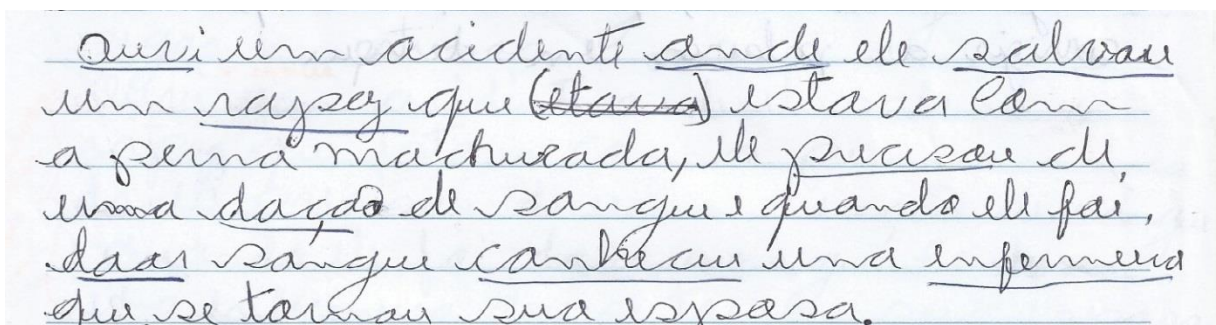 Ouvi um acidente onde ele salvou
um rapaz que (etava) estava com
a perna machucada, ele precisou de
uma doção de sangue e quando ele foi,
doar sangue conheceu uma enfermeira
que se tornou sua esposa.